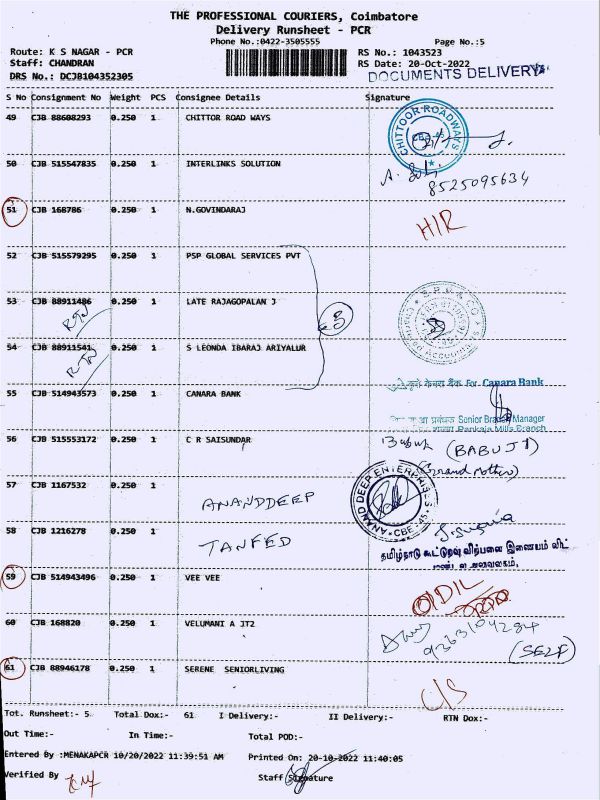 THE PROFESSIONAL COURIERS, Coimbatore
Delivery Runsheet - PCR
Phone No.:0422-3505555 Page No.:5
Route: K S NAGAR - PCR RS No.: 1043523
Staff: CHANDRAN RS Date: 20-Oct-2022
DRS No.: DCJB104352305 DOCUMENTS DELIVERY
S No Consignment No Weight PCS Consignee Details Signature
49 CJB 88608293 0.250 1 CHITTOR ROAD WAYS
CHITTOOR ROADWAYS
50 CJB 515547835 0.250 1 INTERLINKS SOLUTION
8525095634
51 CJB 168786 0.250 1 N.GOVINDARAJ
H/R
52 CJB 515579295 0.250 1 PSP GLOBAL SERVICES PVT
53 CJB 88911486 0.250 1 LATE RAJAGOPALAN J
RTN
3
54 CJB 88911541 0.250 1 S LEONDA IBARAJ ARIYALUR
RTN
Chartered Accountants
55 CJB 514943573 0.250 1 CANARA BANK
कृते केनरा बैंक For Canara Bank
Senior Branch Manager
Pankaja Mills Branch
56 CJB 515553172 0.250 1 C R SAISUNDAR
(BABUJI)
(Grand mother)
57 CJB 1167532 0.250 1
ANANDDEEP
ANAND DEEP ENTERPRISES
CBE-45
58 CJB 1216278 0.250 1
TANFED
தமிழ்நாடு கூட்டுறவு விற்பனை இணையம் லிட்
59 CJB 514943496 0.250 1 VEE VEE
O/DIL
60 CJB 168820 0.250 1 VELUMANI A JT2
9363104284
(SELF)
61 CJB 88946178 0.250 1 SERENE SENIORLIVING
C/S
Tot. Runsheet:- 5 Total Dox:- 61 I Delivery:- II Delivery:- RTN Dox:-
Out Time:- In Time:- Total POD:-
Entered By :MENAKAPCR 10/20/2022 11:39:51 AM Printed On: 20-10-2022 11:40:05
Verified By Staff Signature